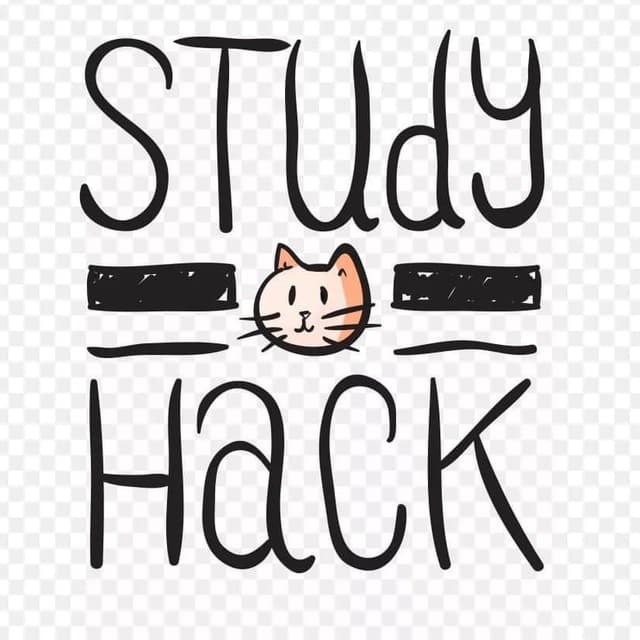 STUdy
HaCK